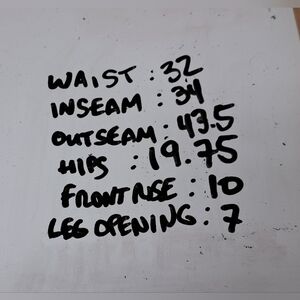 WAIST : 32
INSEAM : 34
OUTSEAM : 43.5
HIPS : 19.75
FRONT RISE : 10
LEG OPENING : 7